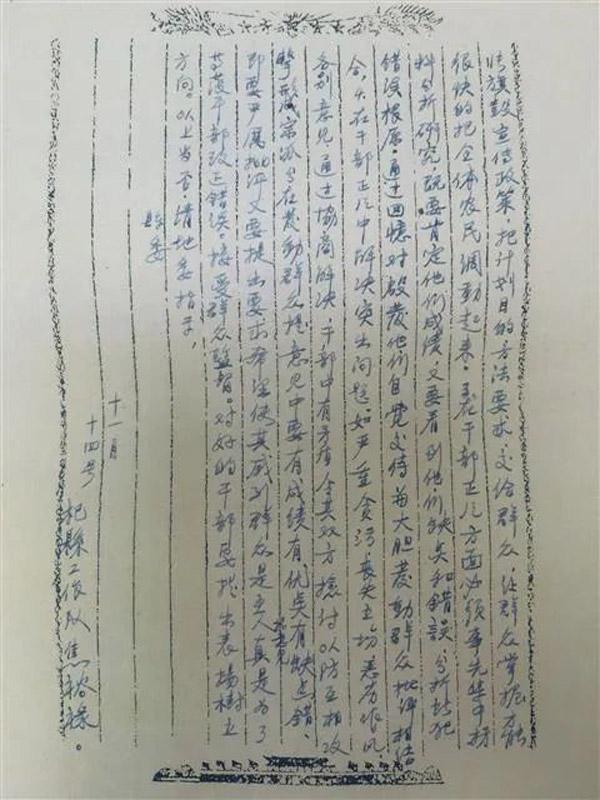 张旗鼓宣传政策，把计划目的方法要求，交给群众，让群众掌握，才能
很快的把全体农民调动起来。在干部正气方面必须事先集中材
料分析研究既要肯定他们成绩又要看到他们缺点和错误，分析其犯
错误根原。通过回忆对啟发他们自觉交待，并大胆发动群众批评相结
合，在干部正气中解决突出问题如严重贪污、丧失立场恶劣作风。
各别意见通过协商解决，干部中有矛盾令其双方检讨以防互相攻
击形成宗派，在发动群众提意见中要有成绩有优点有缺点错，
即要严属批评又要提出要求希望使其感到群众是主人真是为了
干部改正错误。接受群众监督。对好的干部要提出表扬树立
方向。以上当否请地委指示，
县委
十一月
十四号
杞县工作队焦裕禄。